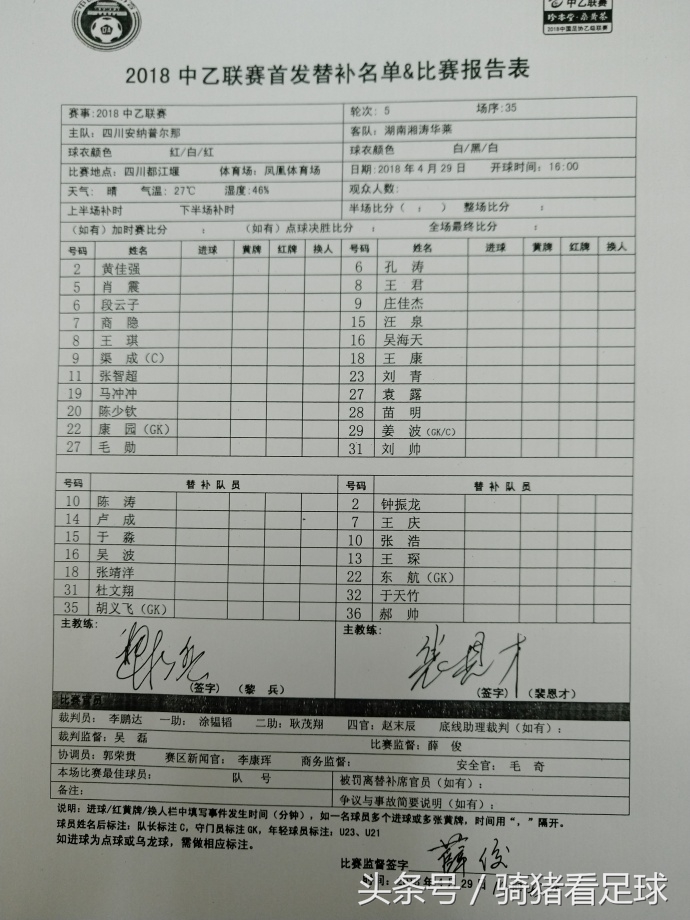 中乙联赛
2018中国足协乙级联赛
2018 中乙联赛首发替补名单&比赛报告表
赛事:2018 中乙联赛 轮次: 5 场序:35
主队: 四川安纳普尔那 客队: 湖南湘涛华莱
球衣颜色 红/白/红 球衣颜色 白/黑/白
比赛地点: 四川都江堰 体育场: 凤凰体育场 日期:2018 年 4 月 29 日 开球时间: 16:00
天气: 晴 气温: 27℃ 湿度:46% 观众人数:
上半场补时 下半场补时 半场比分( : ) 整场比分 :
(如有)加时赛比分 : (如有)点球决胜比分 : 全场最终比分 :
号码 姓名 进球 黄牌 红牌 换人 号码 姓名 进球 黄牌 红牌 换人
2 黄佳强 6 孔 涛
5 肖 震 8 王 君
6 段云子 9 庄佳杰
7 商 隐 15 汪 泉
8 王 琪 16 吴海天
9 渠 成(C) 18 王 康
11 张智超 23 刘 青
19 马冲冲 27 袁 露
20 陈少钦 28 苗 明
22 康 园(GK) 29 姜 波(GK/C)
27 毛 勋 31 刘 帅
号码 替 补 队 员 号码 替 补 队 员
10 陈 涛 2 钟振龙
14 卢 成 7 王 庆
15 于 淼 10 张 浩
16 吴 波 13 王 琛
18 张靖洋 22 东 航(GK)
31 杜文翔 32 于天竹
35 胡义飞(GK) 36 郝 帅
主教练: 主教练:
(签字) (黎 兵) 裴恩才 (签字) (裴恩才)
比赛官员
裁判员: 李鹏达 一助: 涂韫韬 二助: 耿茂翔 四官: 赵末辰 底线助理裁判(如有):
裁判监督: 吴 磊 比赛监督: 薛 俊
协调员: 郭荣贵 赛区新闻官: 李康珲 商务监督: 安全官: 毛 奇
本场比赛最佳球员: 队 号 被罚离替补席官员(如有):
备注: 争议与事故简要说明(如有):
说明: 进球/红黄牌/换人栏中填写事件发生时间(分钟), 如一名球员多个进球或多张黄牌, 时间用“, ”隔开。
球员姓名后标注: 队长标注 C, 守门员标注 GK, 年轻球员标注: U23、U21
如进球为点球或乌龙球, 需做相应标注。
比赛监督签字 薛俊
时间: 29 日
头条号/骑猪看足球